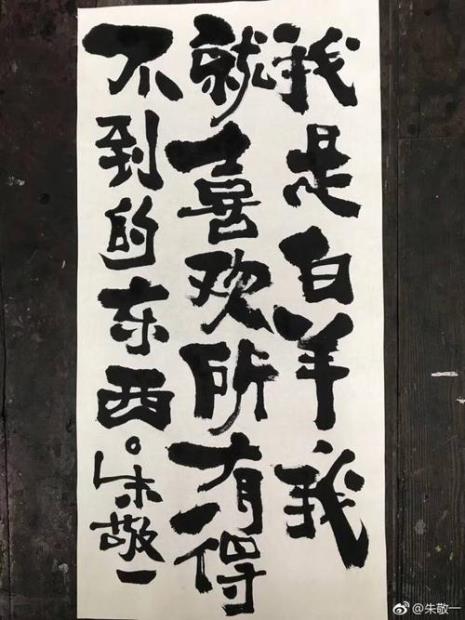 我是白羊，我
就喜欢所有得
不到的东西。朱敬一
@朱敬一